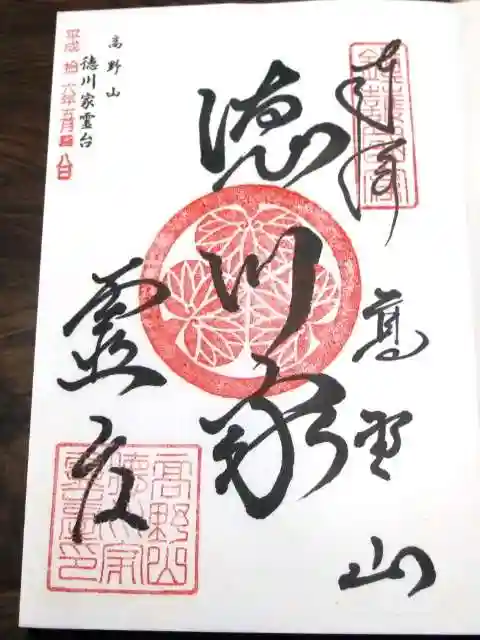 奉拝
高野山
徳川家
靈
高野山
徳川家霊台
平成拾六年五月八日
高野山
徳川家
霊臺印